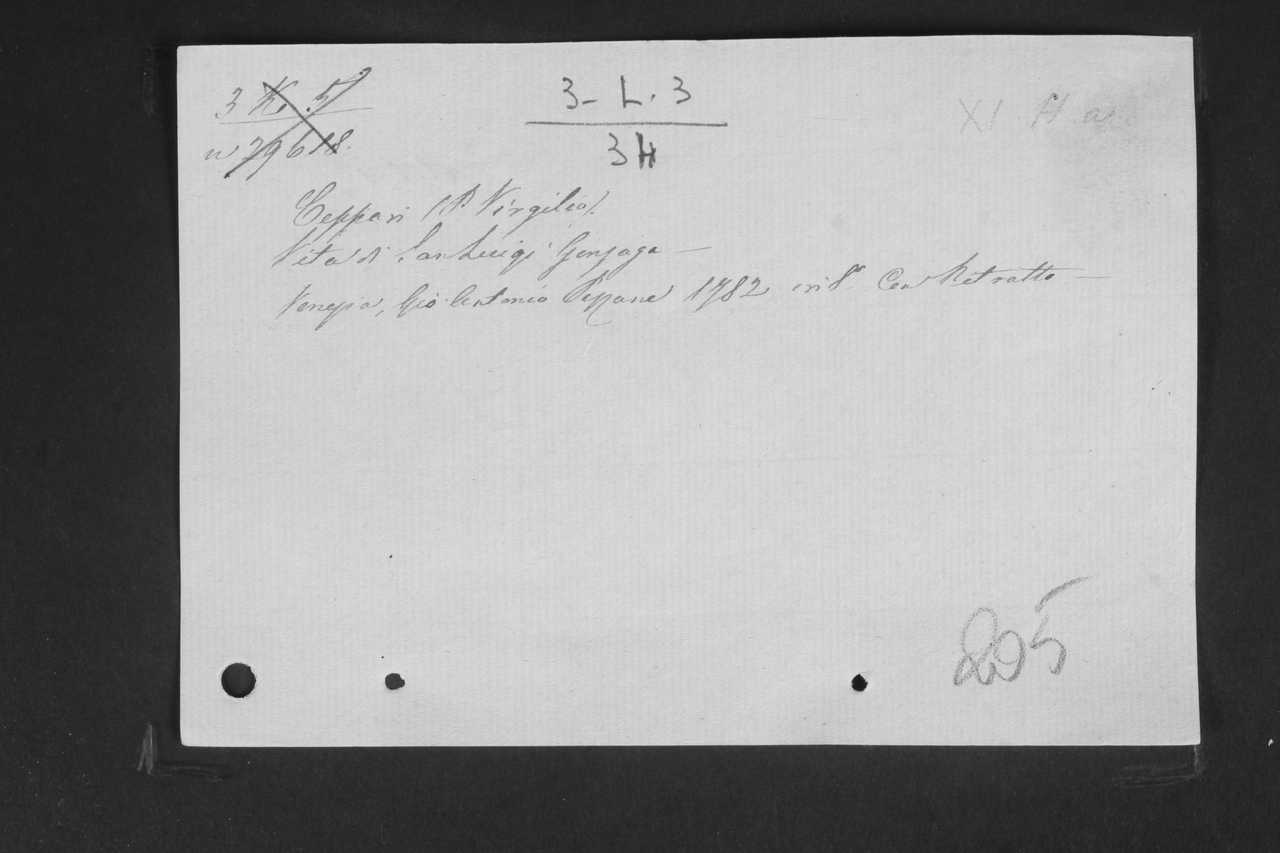 3 K. 5
3 - L. 3
XI H a
n 79618.
34
Ceppari (P. Virgilio).
Vita di San Luigi Gonzaga —
Venezia, Gio. Antonio Pezzana 1782 in 8° Con Ritratto —
205